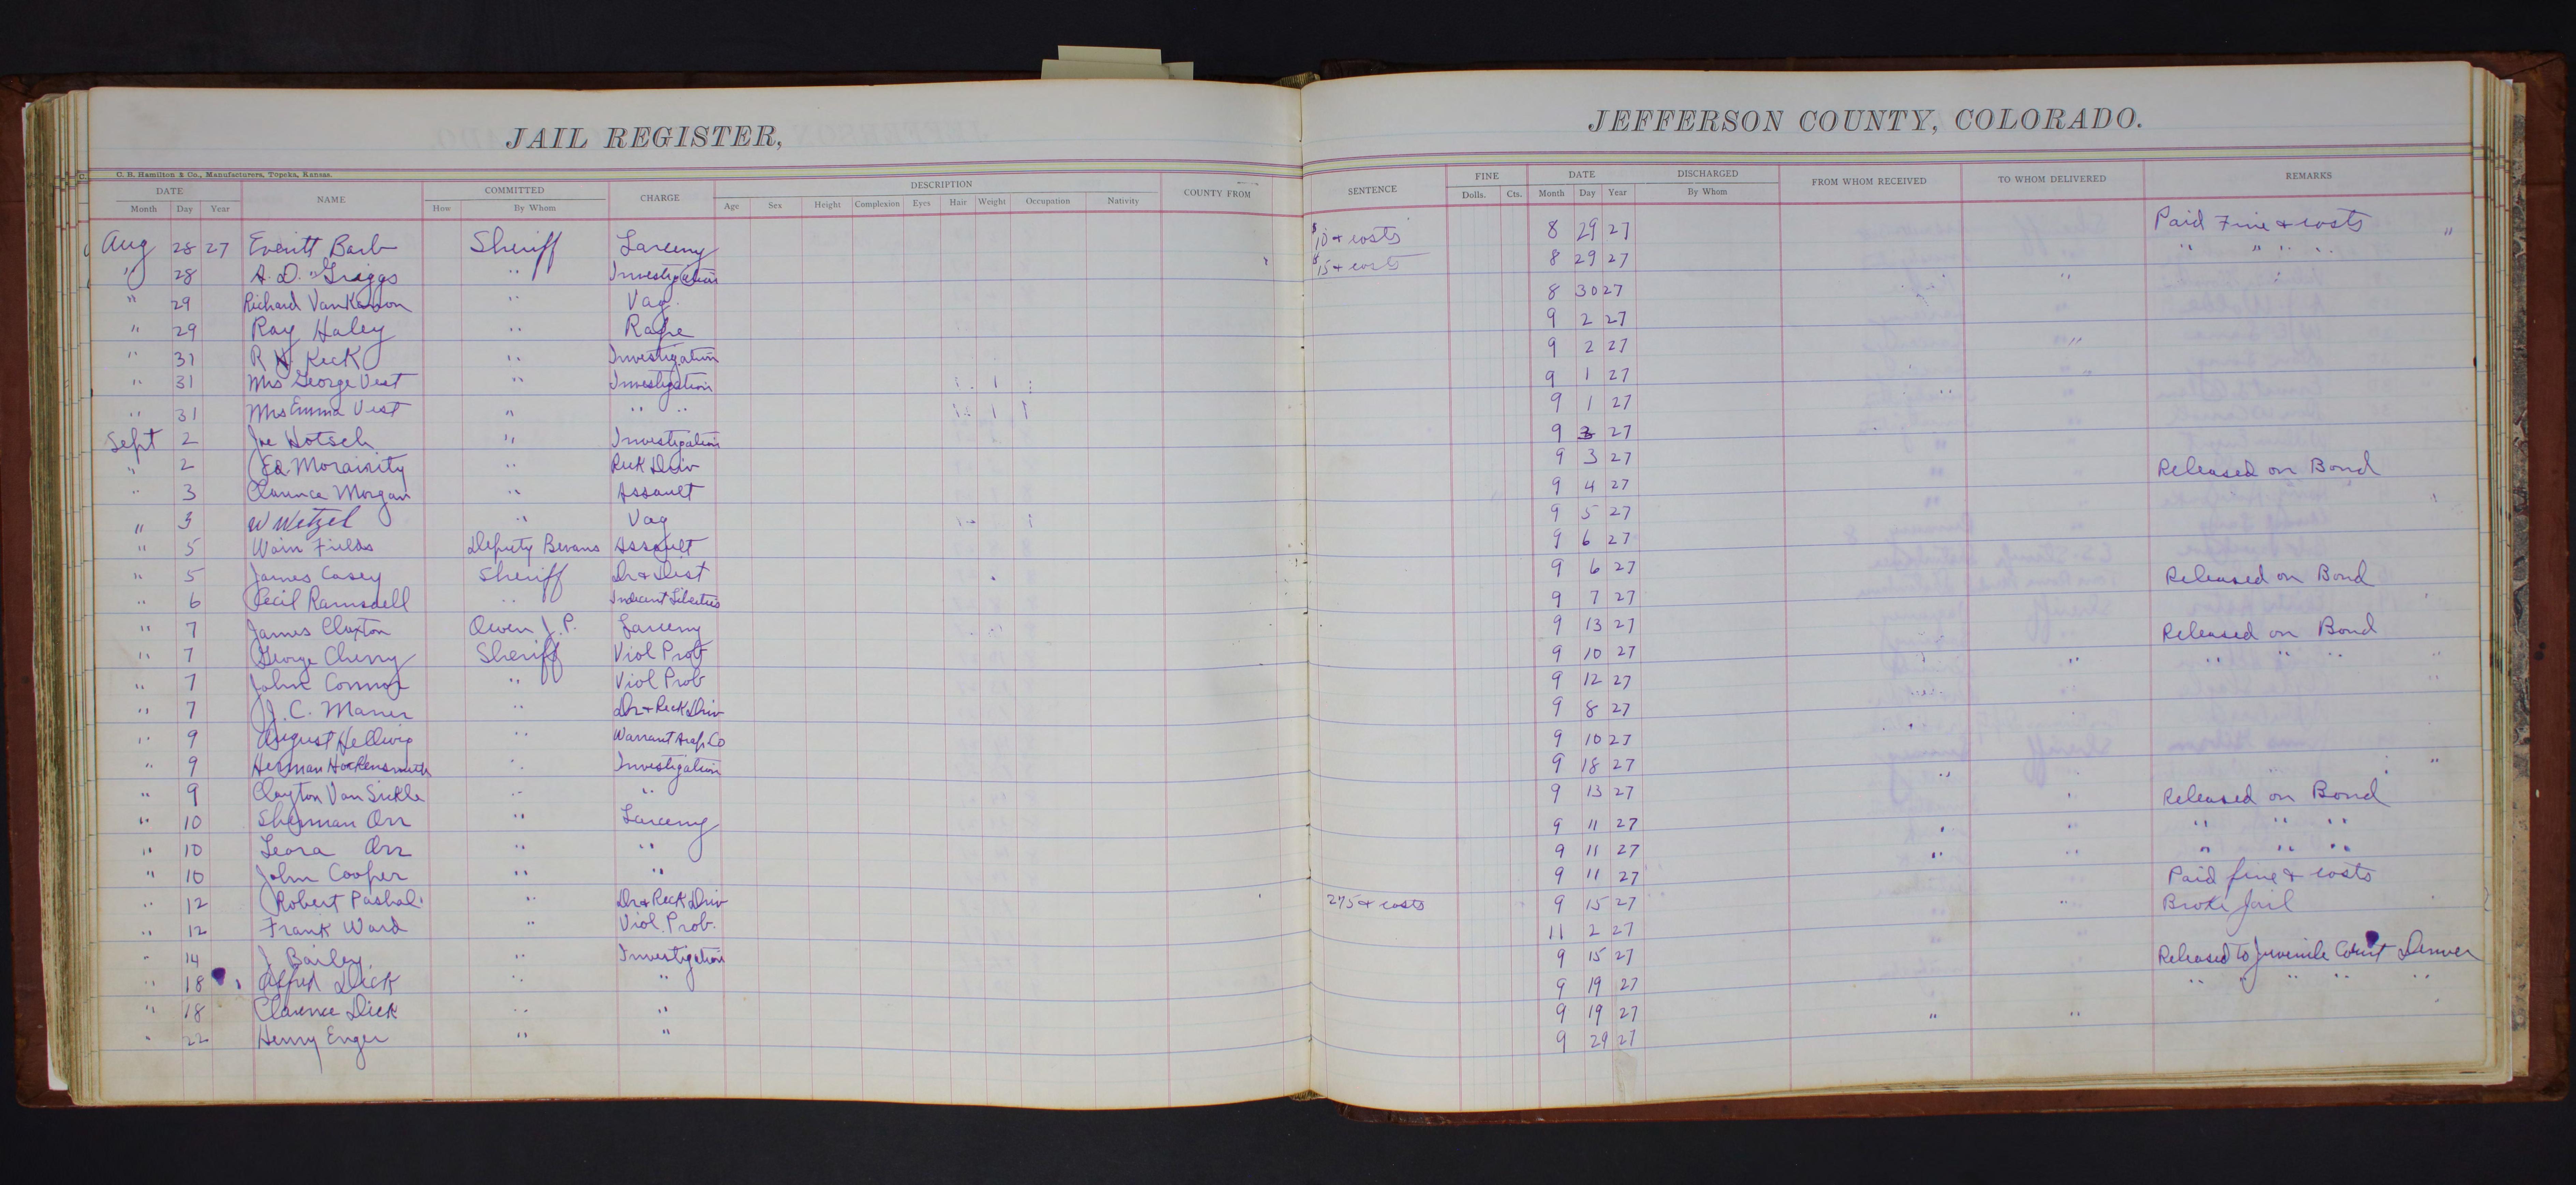 JAIL REGISTER,
JEFFERSON COUNTY, COLORADO.
C. B. Hamilton & Co., Manufacturers, Topeka, Kansas.
DATE NAME COMMITTED CHARGE DESCRIPTION COUNTY FROM SENTENCE FINE DATE DISCHARGED FROM WHOM RECEIVED TO WHOM DELIVERED REMARKS
Month Day Year How By Whom Age Sex Height Complexion Eyes Hair Weight Occupation Nativity Dolls. Cts. Month Day Year By Whom
Aug 28 27 Everitt Barb Sheriff Larceny $10 + costs 8 29 27 Paid Fine & costs "
" 28 A. D. Griggs " Investigation $15 + costs 8 29 27 " " " "
" 29 Richard VanKamon " Vag. 8 30 27
" 29 Ray Haley " Rape 9 2 27
" 31 R Keck " Investigation 9 2 27
" 31 Mrs George Vest " Investigation 9 1 27
" 31 Mrs Emma Vest " " " 9 1 27
Sept 2 Joe Hotsch " Investigation 9 3 27
" 2 Ed. Morairity " Reck Driv 9 3 27 Released on Bond
" 3 Clarence Morgan " Assault 9 4 27
" 3 W Wetzel " Vag 9 5 27
" 5 Wain Fields Deputy Bevans Assault 9 6 27
" 5 James Casey Sheriff Dr & Dist 9 6 27 Released on Bond
" 6 Cecil Ramsdell " Indecent Liberties 9 7 27
" 7 James Claxton Owen J. P. Larceny 9 13 27 Released on Bond
" 7 George Cherry Sheriff Viol Prob 9 10 27 " " "
" 7 John Connor " Viol Prob 9 12 27
" 7 J. C. Maner " Dr + Reck Driv 9 8 27
" 9 August Hellwig " Warrant Arap Co 9 10 27
" 9 Herman Hockensmith " Investigation 9 18 27
" 9 Clayton Van Sickle " " 9 13 27 Released on Bond
" 10 Sherman Orr " Larceny 9 11 27 " " "
" 10 Leora Orr " " 9 11 27 " " "
" 10 John Cooper " " 9 11 27 Paid fine & costs
" 12 Robert Pashal " Dr & Reck Driv 275 + costs 9 15 27 Broke Jail
" 12 Frank Ward " Viol. Prob. 11 2 27
" 14 J Bailey " Investigation 9 15 27 Released to Juvenile Court Denver
" 18 Alfred Dick " " 9 19 27 " " " " "
" 18 Clarence Dick " " 9 19 27
" 22 Henry Enger " " 9 29 27